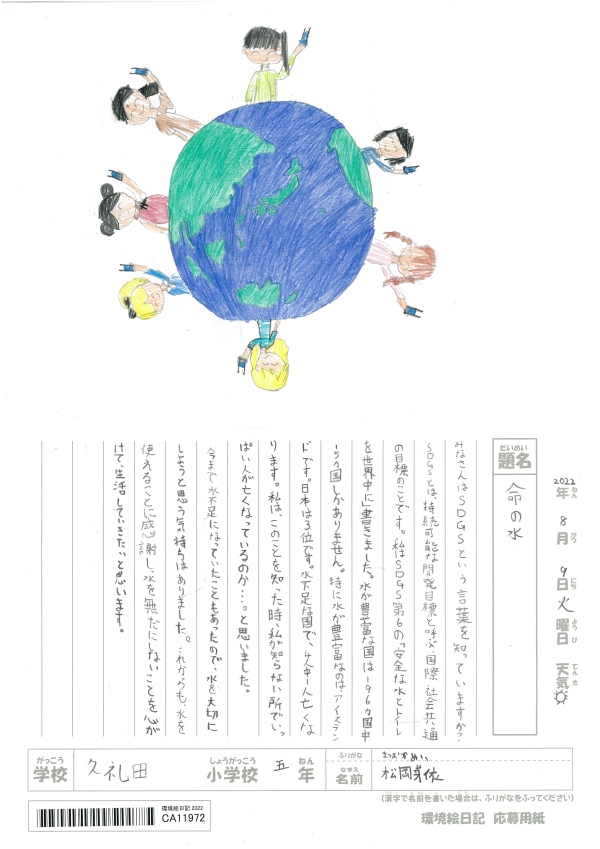 2022年ねん 8月がつ 9日にち 火曜日ようび 天気てんき
題名だいめい
命の水
みなさんはSDGSという言葉を知っていますか?
SDGSとは、持続可能な開発目標と呼ぶ国際社会共通
の目標のことです。私はSDGS第6の「安全な水とトイレ
を世界中に」書きました。水が豊富な国は196ヵ国中
15ヵ国しかありません。特に水が豊富なのは、アイスラン
ドです。日本は3位です。水不足な国で、4人中1人亡くな
ります。私は、このことを知った時、私が知らない所でいっ
ぱい人が亡くなっているのか…。と思いました。
今まで水不足になっていたこともあったので、水を大切に
しようと思う気持ちはありました。これからも、水を
使えることに感謝し、水を無だにしないことを心が
けて、生活していきたいと思います。
がっこう しょうがっこう ねん ふりがな まつおかめい
学校 久礼田 小学校 五 年 なまえ 名前 松岡芽依
(漢字で名前を書いた場合は、ふりがなをふってください)
環境絵日記 応募用紙
環境絵日記 2022
CA11972